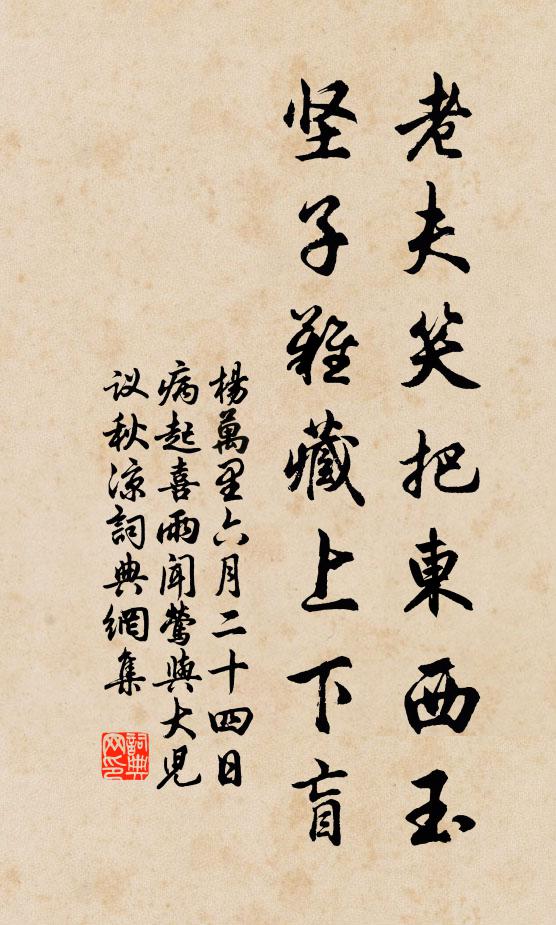 老夫笑把東西玉
坚子難藏上下肓
楊萬里六月二十四日
病起喜雨闻鶯與大兒
议秋涼詞典網集
詞典网印